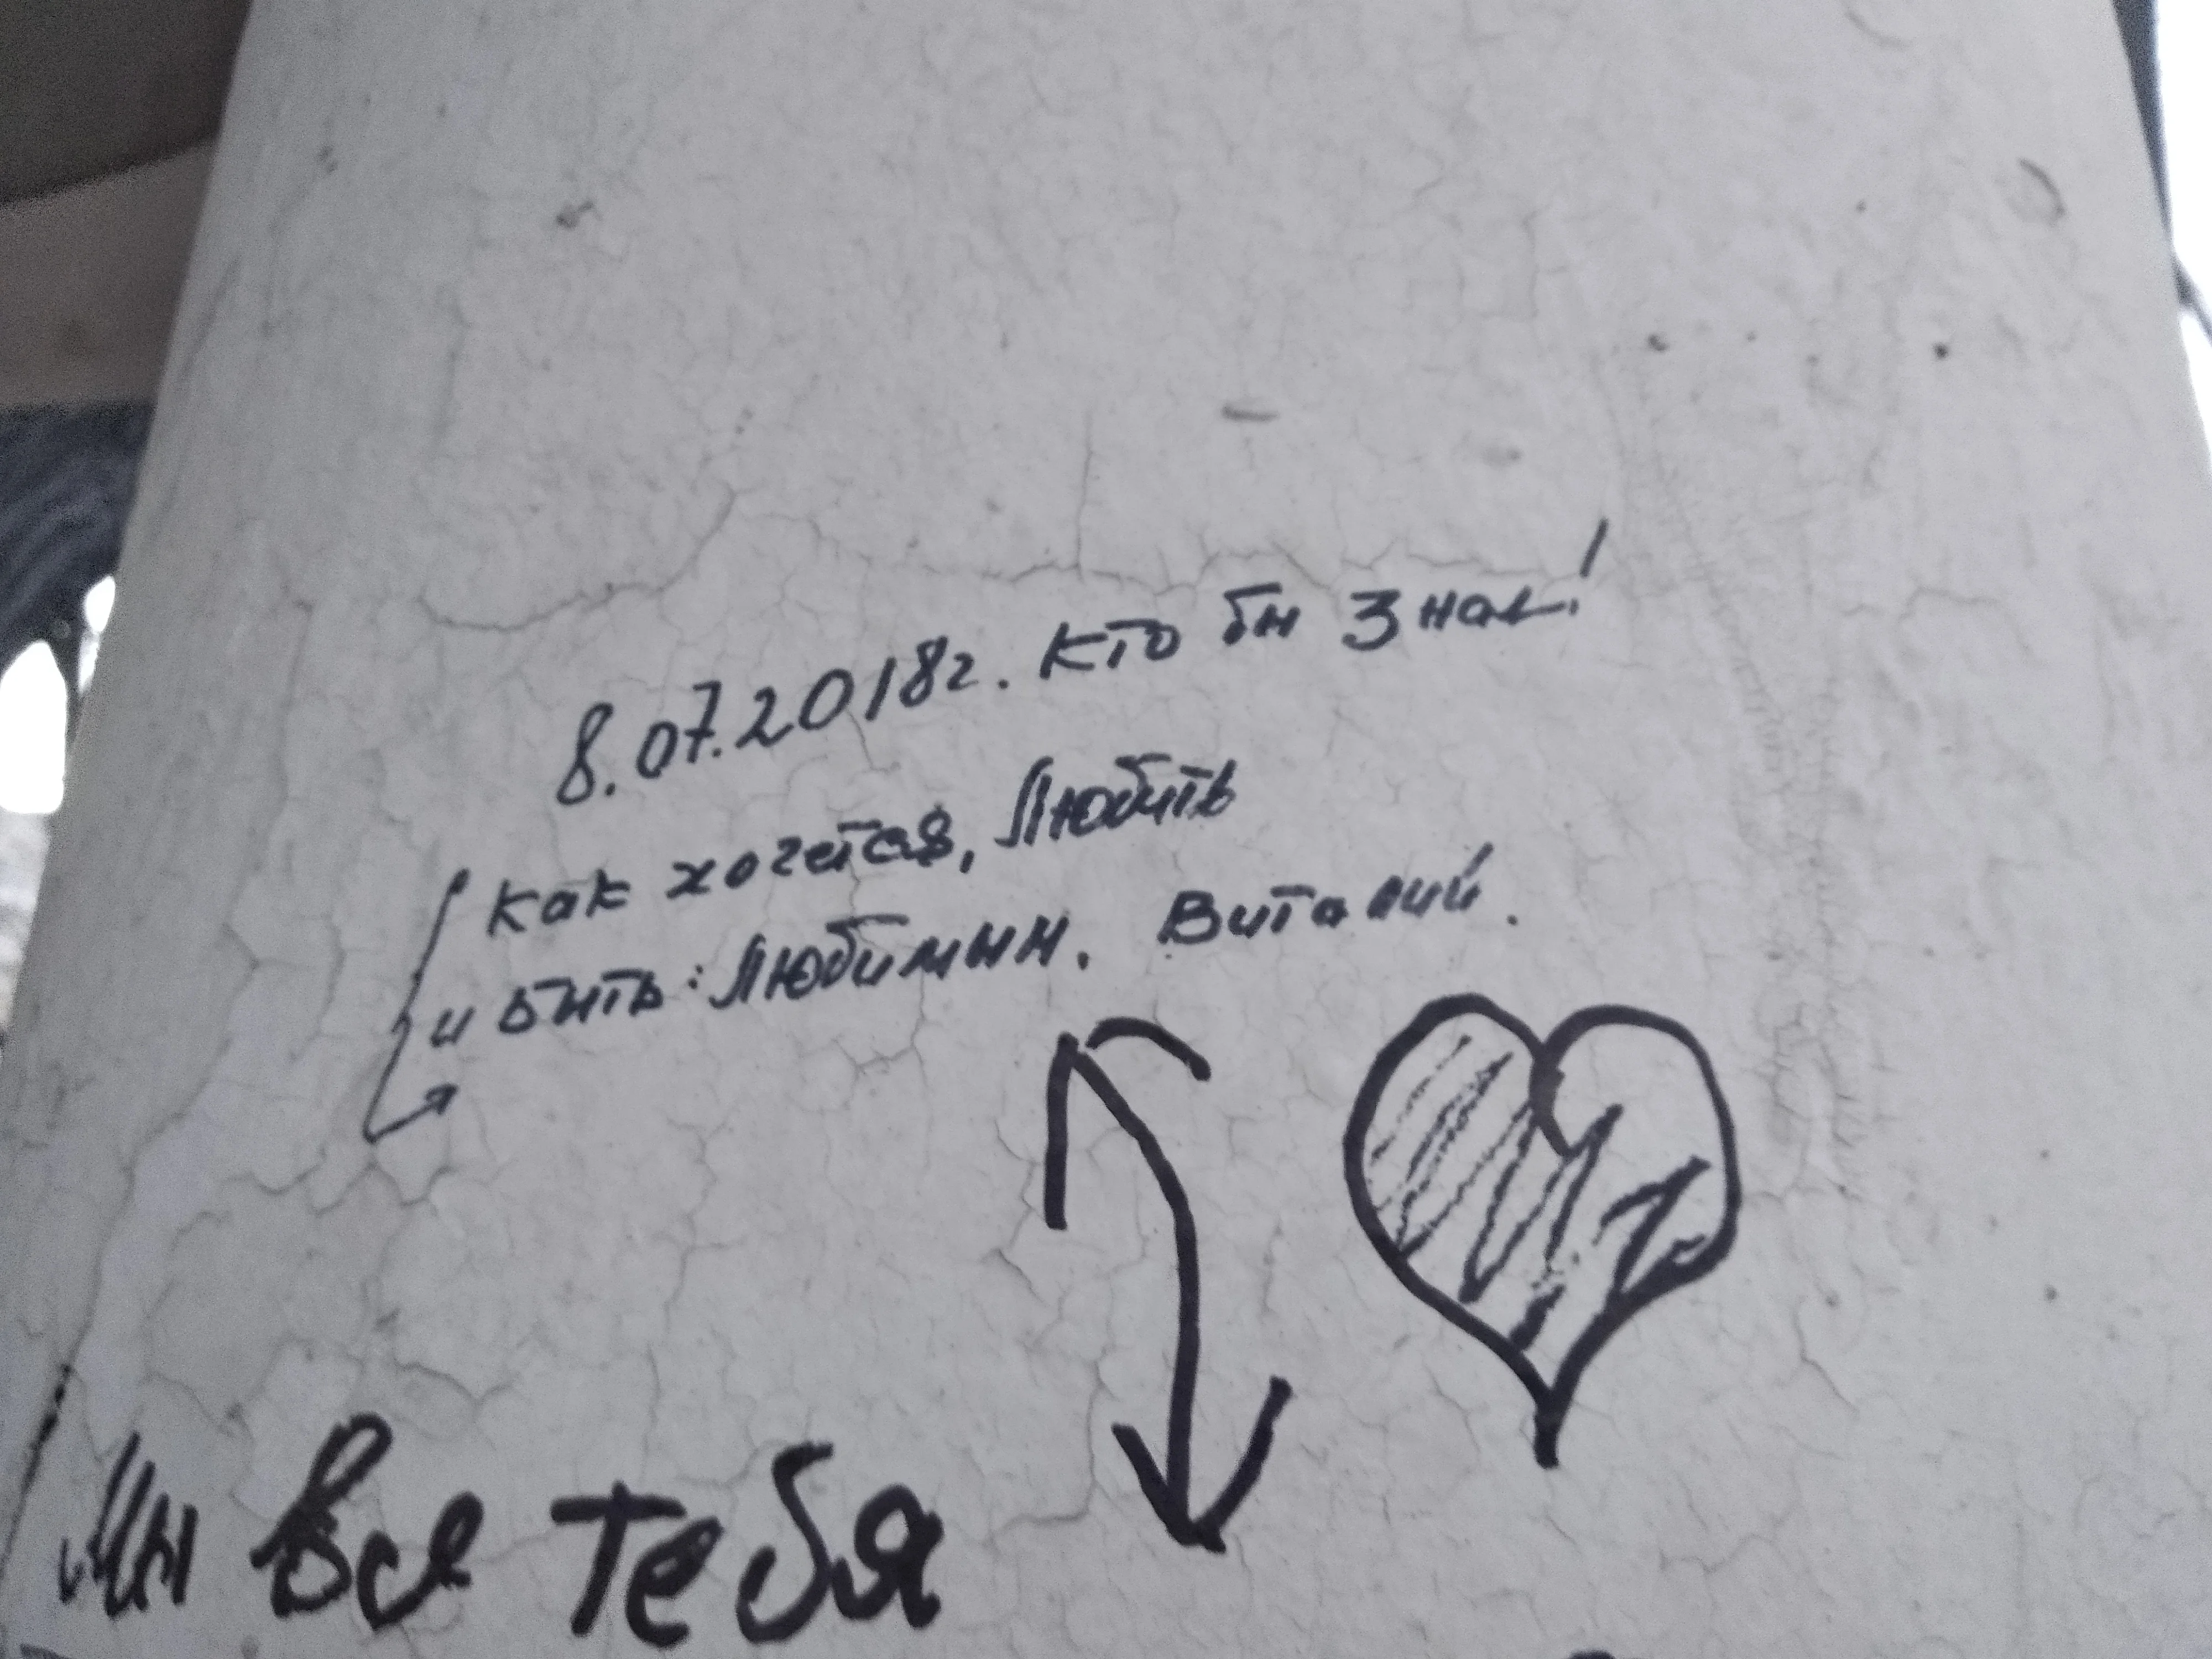 8.07.2018г. Кто бы знал!
Как хочется, Любить
и быть: Любимым. Виталий.
Мы все тебя